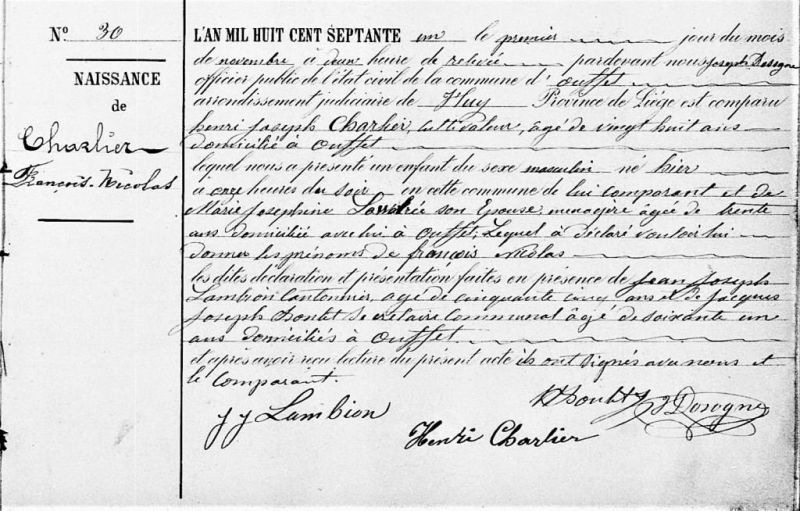 N° 30
NAISSANCE
de
Charlier
François-Nicolas
L'AN MIL HUIT CENT SEPTANTE un le premier jour du mois
de novembre à deux heure de relevée pardevant nous Joseph Dosogne
officier public de l'état civil de la commune d'Ouffet
arrondissement judiciaire de Huy Province de Liége est comparu
henri Joseph Charlier, cultivateur, agé de vingt huit ans
domicilié à Ouffet
lequel nous a présenté un enfant du sexe masculin né hier
a onze heures du soir en cette commune de lui comparant et de
Marie Josephine son Epouse, menagère âgée de trente
ans domiciliée avec lui à Ouffet; Lequel à déclaré vouloir lui
donner les prénoms de françois Nicolas
les dites déclaration et présentation faites en présence de Jean Joseph
Lambion Cantonnier, agé de cinquante cinq ans et de Jacques
Joseph Secretaire Communal âgé de soixante un
ans domiciliés à Ouffet
et après avoir reçu lecture du présent acte ils ont signés avec nous et
le Comparant.
J J Lambion
J Dosogne
Henri Charlier